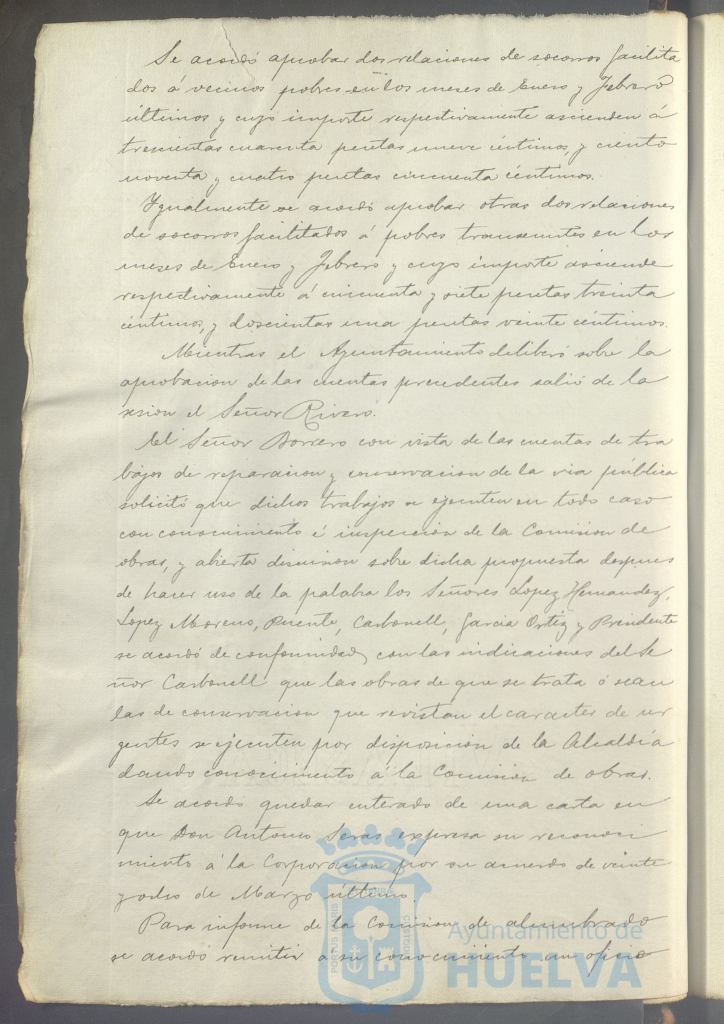 Se acordó aprobar dos relaciones de socorros facilita
dos á vecinos pobres en los meses de Enero y Febrero
últimos y cuyo importe respectivamente ascienden á
trescientas cuarenta pesetas nueve céntimos, y ciento
noventa y cuatro pesetas cincuenta céntimos.
Ygualmente se acordó aprobar otras dos relaciones
de socorros facilitados á pobres transeuntes en los
meses de Enero y Febrero y cuyo importe asciende
respectivamente á cincuenta y siete pesetas treinta
céntimos, y doscientas una pesetas veinte céntimos.
Mientras el Ayuntamiento deliberó sobre la
aprobacion de las cuentas precedentes salió de la
sesion el Señor Rivero.
El Señor Borrero con vista de las cuentas de tra
bajos de reparacion y conservacion de la via pública
solicitó que dichos trabajos se ejecuten en todo caso
con conocimiento é inspeccion de la Comision de
obras, y abierta discusion sobre dicha propuesta despues
de hacer uso de la palabra los Señores Lopez Hernandez,
Lopez Moreno, Puente, Carbonell, Garcia Ortiz y Presidente
se acordó de conformidad con las indicaciones del Se
ñor Carbonell que las obras de que se trata ó sean
las de conservacion que revistan el caracter de ur
gentes se ejecuten por disposicion de la Alcaldía
dando conocimiento á la Comision de obras.
Se acordó quedar enterado de una carta en
que Don Antonio expresa su reconoci
miento á la Corporacion por su acuerdo de veinte
y ocho de Marzo último.
Para informe de la Comision de alumbrado
se acordó remitir á su conocimiento un oficio
Ayuntamiento de
HUELVA